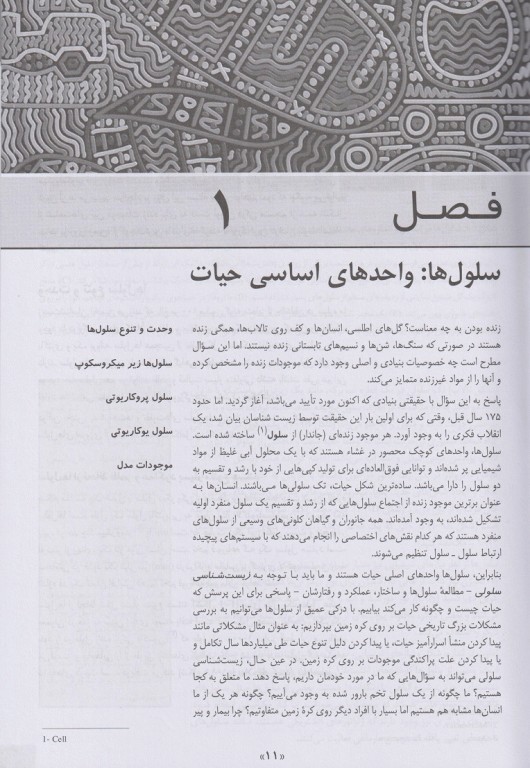 فصل ۱
سلول‌ها: واحدهای اساسی حیات
زنده بودن به چه معناست؟ گل‌های اطلسی، انسان‌ها و کف روی تالاب‌ها، همگی زنده
هستند در صورتی که سنگ‌ها، شن‌ها و نسیم‌های تابستانی زنده نیستند. اما این سؤال
مطرح است چه خصوصیات بنیادی و اصلی وجود دارد که موجودات زنده را مشخص کرده
و آنها را از مواد غیرزنده متمایز می‌کند.
پاسخ به این سؤال با حقیقتی بنیادی که اکنون مورد تأیید می‌باشد، آغاز گردید. اما حدود
۱۷۵ سال قبل، وقتی که برای اولین بار این حقیقت توسط زیست شناسان بیان شد، یک
انقلاب فکری را به وجود آورد. هر موجود زنده‌ای (جاندار) از سلول(۱) ساخته شده است.
سلول‌ها، واحدهای کوچک محصور در غشاء هستند که با یک محلول آبی غلیظ از مواد
شیمیایی پر شده‌اند، و توانایی فوق‌العاده‌ای برای تولید کپی‌هایی از خود با رشد و تقسیم به
دو سلول را دارا می‌باشد. ساده‌ترین شکل حیات، تک سلولی ها می‌باشند. انسان‌ها به
عنوان برترین موجود زنده از اجتماع سلول‌هایی که از رشد و تقسیم یک سلول منفرد اولیه
تشکیل شده‌اند، به وجود آمده‌اند. همه جانوران و گیاهان کلونی‌های وسیعی از سلول‌های
منفرد هستند که هر کدام نقش‌های اختصاصی را انجام می‌دهند که با سیستم‌های پیچیده
ارتباط سلول ـ سلول تنظیم می‌شوند.
بنابراین، سلول‌ها واحدهای اصلی حیات هستند و ما باید با توجه به زیست‌شناسی
سلولی – مطالعهٔ سلول‌ها و ساختار، عملکرد و رفتارشان – پاسخی برای این پرسش که
حیات چیست و چگونه کار می‌کند بیابیم. با درکی عمیق از سلول‌ها می‌توانیم به بررسی
مشکلات بزرگ تاریخی حیات بر روی کره زمین بپردازیم: به عنوان مثال مشکلاتی مانند
پیدا کردن منشأ اسرارآمیز حیات، یا پیدا کردن دلیل تنوع حیات طی میلیاردها سال تکامل و
یا پیدا کردن علت پراکندگی موجودات بر روی کره زمین. در عین حال، زیست‌شناسی
سلولی می‌تواند به سؤال‌هایی که ما در مورد خودمان داریم، پاسخ دهد. ما متعلق به کجا
هستیم؟ ما چگونه از یک سلول تخم بارور شده به وجود می‌آییم؟ چگونه هر یک از ما
انسان‌ها مشابه هم هستیم اما بسیار با افراد دیگر روی کرهٔ زمین متفاوتیم؟ چرا بیمار و پیر
وحدت و تنوع سلول‌ها
سلول‌ها زیر میکروسکوپ
سلول پروکاریوتی
سلول یوکاریوتی
موجودات مدل
1- Cell
«۱۱»